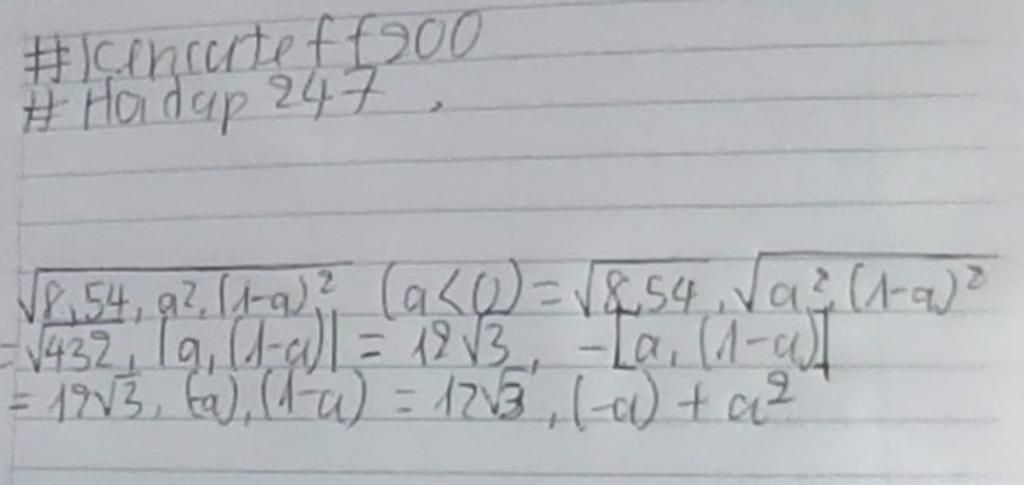 #Kencuteff900
#Hadap 247.
√8.54.a².(1-a)² (a<0) = √8.54.√a².(1-a)²
= √432.|a.(1-a)| = 12√3. -[a.(1-a)]
= 12√3.(-a).(1-a) = 12√3.(-a) + a²